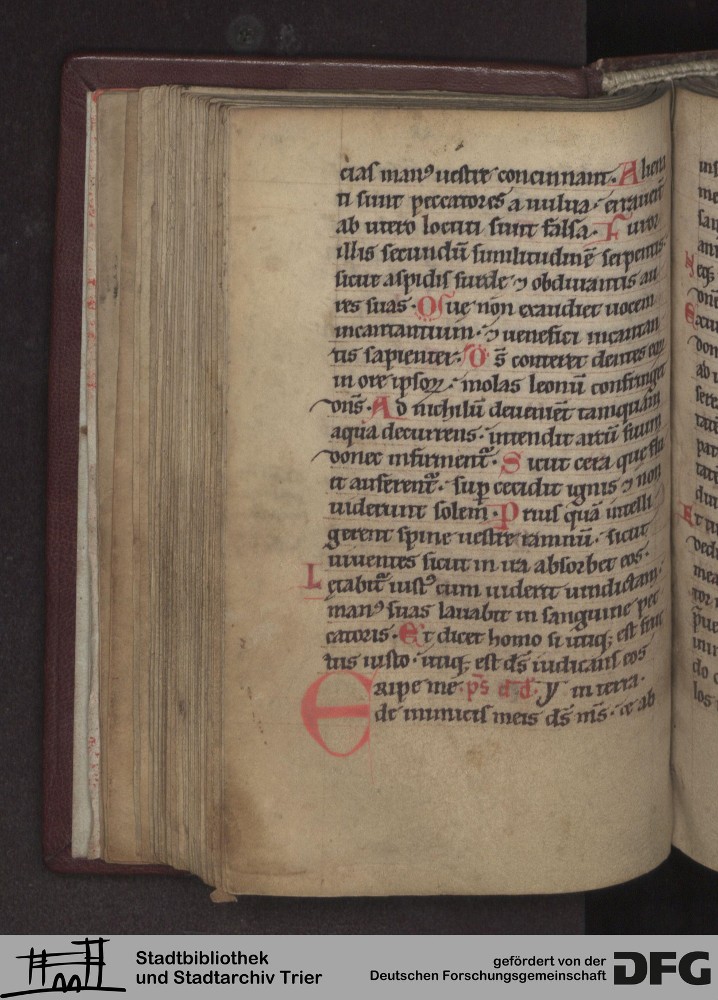 cias man⁹ uestre concinnant. Aliena
ti sunt peccatores a uulua. errauerūt
ab utero locuti sunt falsa. Furor
illis secundū similitudinē serpentis.
sicut aspidis surde ⁊ obdurantis au
res suas. Que non exaudiet uocem
incantantium. ⁊ uenefici incantan
tis sapienter. D s̄ conteret dentes eoꝝ
in ore ipsoꝝ. molas leonū confringet
dn̄s. Ad nichilū deuenient tamquam
aqua decurrens. intendit arcū suum
donec infirment᷑. Sicut cera que flu
it auferent᷑. sup̱ cecidit ignis ⁊ non
uiderunt solem. Prius quā intelli
gerent spine uestre ramnū. sicut
uiuentes sicut in ira absorbet eos.
Letabit᷑ iust⁹ cum uiderit uindictam.
man⁹ suas lauabit in sanguine pec
catoris. Et dicet homo si utiq; est fruc
tus iusto. utiq; est ds̄ iudicans eos
Eripe me. ps̄ d.d. y in terra.
de inimicis meis ds̄ m̄s. ⁊ ab
Stadtbibliothek
und Stadtarchiv Trier
gefördert von der
Deutschen Forschungsgemeinschaft
DFG